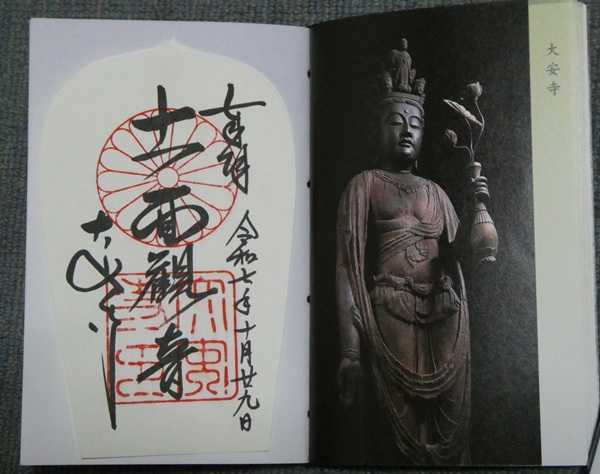 大安寺
奉拝
令和七年十月廿九日
十一面觀音
大安寺